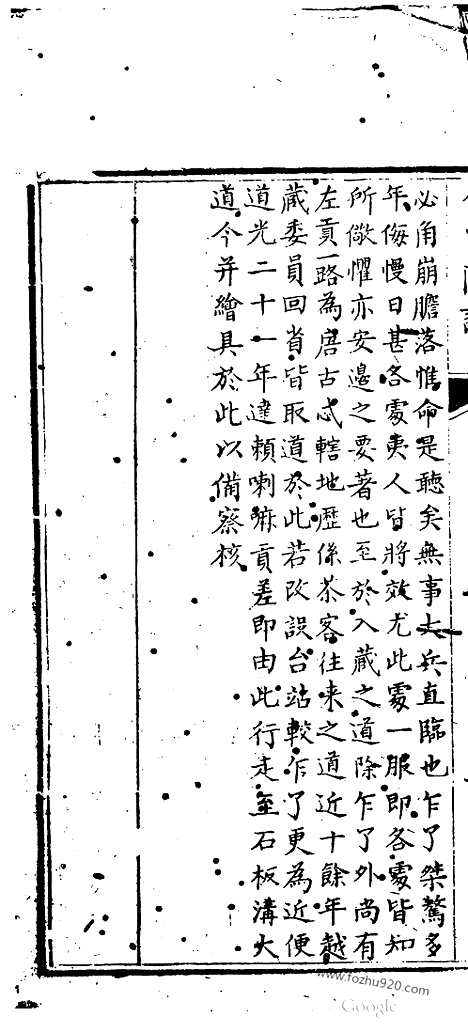 必角崩膽落惟命是聽矣無事大兵直臨也乍了桀驁多
年侮慢日甚各處夷人皆將效尤此處一服即各處皆知
所儆懼亦安邊之要著也至於入藏之道除乍了外尚有
左貢一路為唐古忒轄地歷係茶客往来之道近十餘年越
藏委員回省皆取道於此若改設台站較乍了更為近便
道光二十一年達賴喇嘛貢差即由此行走至石板溝大
道今并繪具於此以備察核
www.fozhu920.com
Google